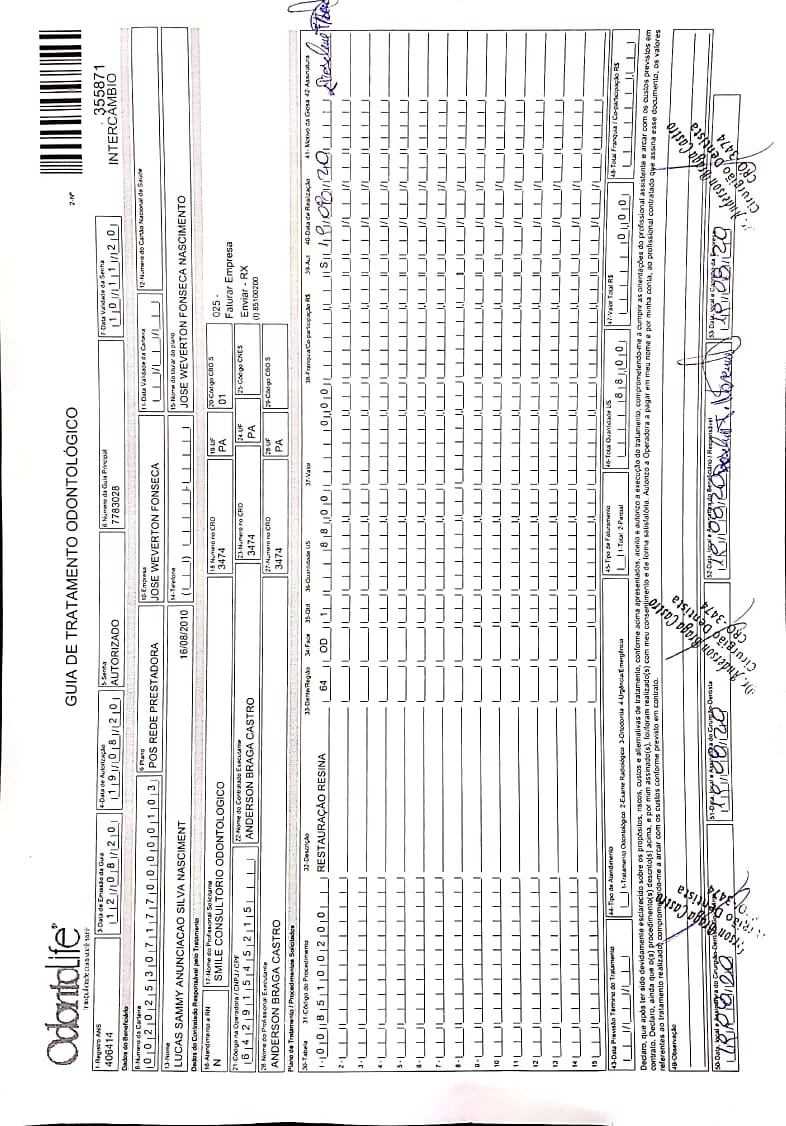 OdontoLife
GUIA DE TRATAMENTO ODONTOLÓGICO
2-Nº
355871
INTERCÂMBIO
1-Registro ANS
406414
3-Data de Emissão da Guia
12/08/20
4-Data de Autorização
19/08/20
5-Senha
AUTORIZADO
6-Número da Guia Principal
7783028
7-Data Validade da Senha
10/11/20
Dados do Beneficiário
8-Número da Carteira
00202530717700000103
9-Plano
POS REDE PRESTADORA
10-Empresa
JOSE WEVERTON FONSECA
11-Data Validade da Carteira
12-Número do Cartão Nacional de Saúde
13-Nome
LUCAS SAMMY ANUNCIACAO SILVA NASCIMENT
16/08/2010
14-Telefone
15-Nome do titular do plano
JOSE WEVERTON FONSECA NASCIMENTO
Dados do Contratado Responsável pelo Tratamento
16-Atendimento a RN
N
17-Nome do Profissional Solicitante
SMILE CONSULTORIO ODONTOLOGICO
18-Número no CRO
3474
19-UF
PA
20-Código CBO S
01
025 -
Faturar Empresa
Enviar - RX
(I) 85100200
21-Código na Operadora / CNPJ / CPF
64291545215
22-Nome do Contratado Executante
ANDERSON BRAGA CASTRO
23-Número no CRO
3474
24-UF
PA
25-Código CNES
26-Nome do Profissional Executante
ANDERSON BRAGA CASTRO
27-Número no CRO
3474
28-UF
PA
29-Código CBO S
Plano de Tratamento / Procedimentos Solicitados
30-Tabela 31-Código do Procedimento 32-Descrição 33-Dente/Região 34-Face 35-Qtd 36-Quantidade US 37-Valor 38-Franquia/Co-participação R$ 39-Aut 40-Data de Realização 41-Motivo da Glosa 42-Assinatura
1- 00 85100200 RESTAURAÇÃO RESINA 64 OD 1 88,00 0,00 S
2 -
3 -
4 -
5 -
6 -
7 -
8 -
9 -
10
11
12
13
14
15
43-Data Previsão Término do Tratamento
44-Tipo de Atendimento
1-Tratamento Odontológico 2-Exame Radiológico 3-Ortodontia 4-Urgência/Emergência
45-Tipo de Faturamento
1-Total 2-Parcial
46-Total Quantidade US
88,00
47-Valor Total R$
0,00
48-Total Franquia / Co-participação R$
Declaro, que após ter sido devidamente esclarecido sobre os propósitos, riscos, custos e alternativas de tratamento, conforme acima apresentados, aceito e autorizo a execução do tratamento, comprometendo-me a cumprir as orientações do profissional assistente e arcar com os custos previstos em
contrato. Declaro, ainda que o(s) procedimento(s) descrito(s) acima, e por mim assinado(s), foi/foram realizado(s) com meu consentimento e de forma satisfatória. Autorizo a Operadora a pagar em meu nome e por minha conta, ao profissional contratado que assina esse documento, os valores
referentes ao tratamento realizado, comprometendo-me a arcar com os custos conforme previsto em contrato.
49-Observação
51-Data, local e Assinatura do Cirurgião-Dentista
Dr. Anderson Braga Castro
Cirurgião Dentista
CRO - 3474
Dr. Anderson Braga Castro
Cirurgião Dentista
CRO - 3474